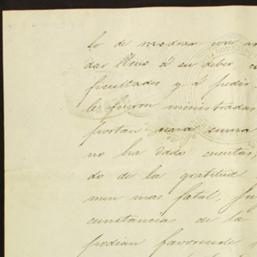 lo de medrar con
dar lleno á su deber
facultades y á pedir
le fueron ministradas
portan suma
no ha dado cuentas,
do de la gratitud
mun mas fatal,
cunstancias de la
podian favorecerle